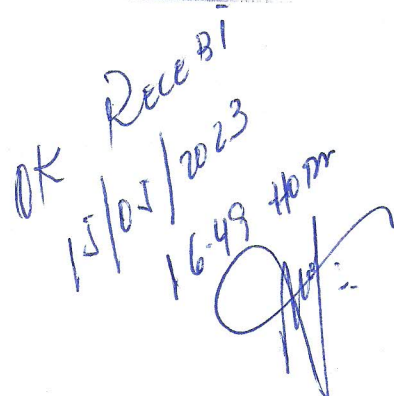 OK RECEBI
15/05/2023
16:49 HORAS